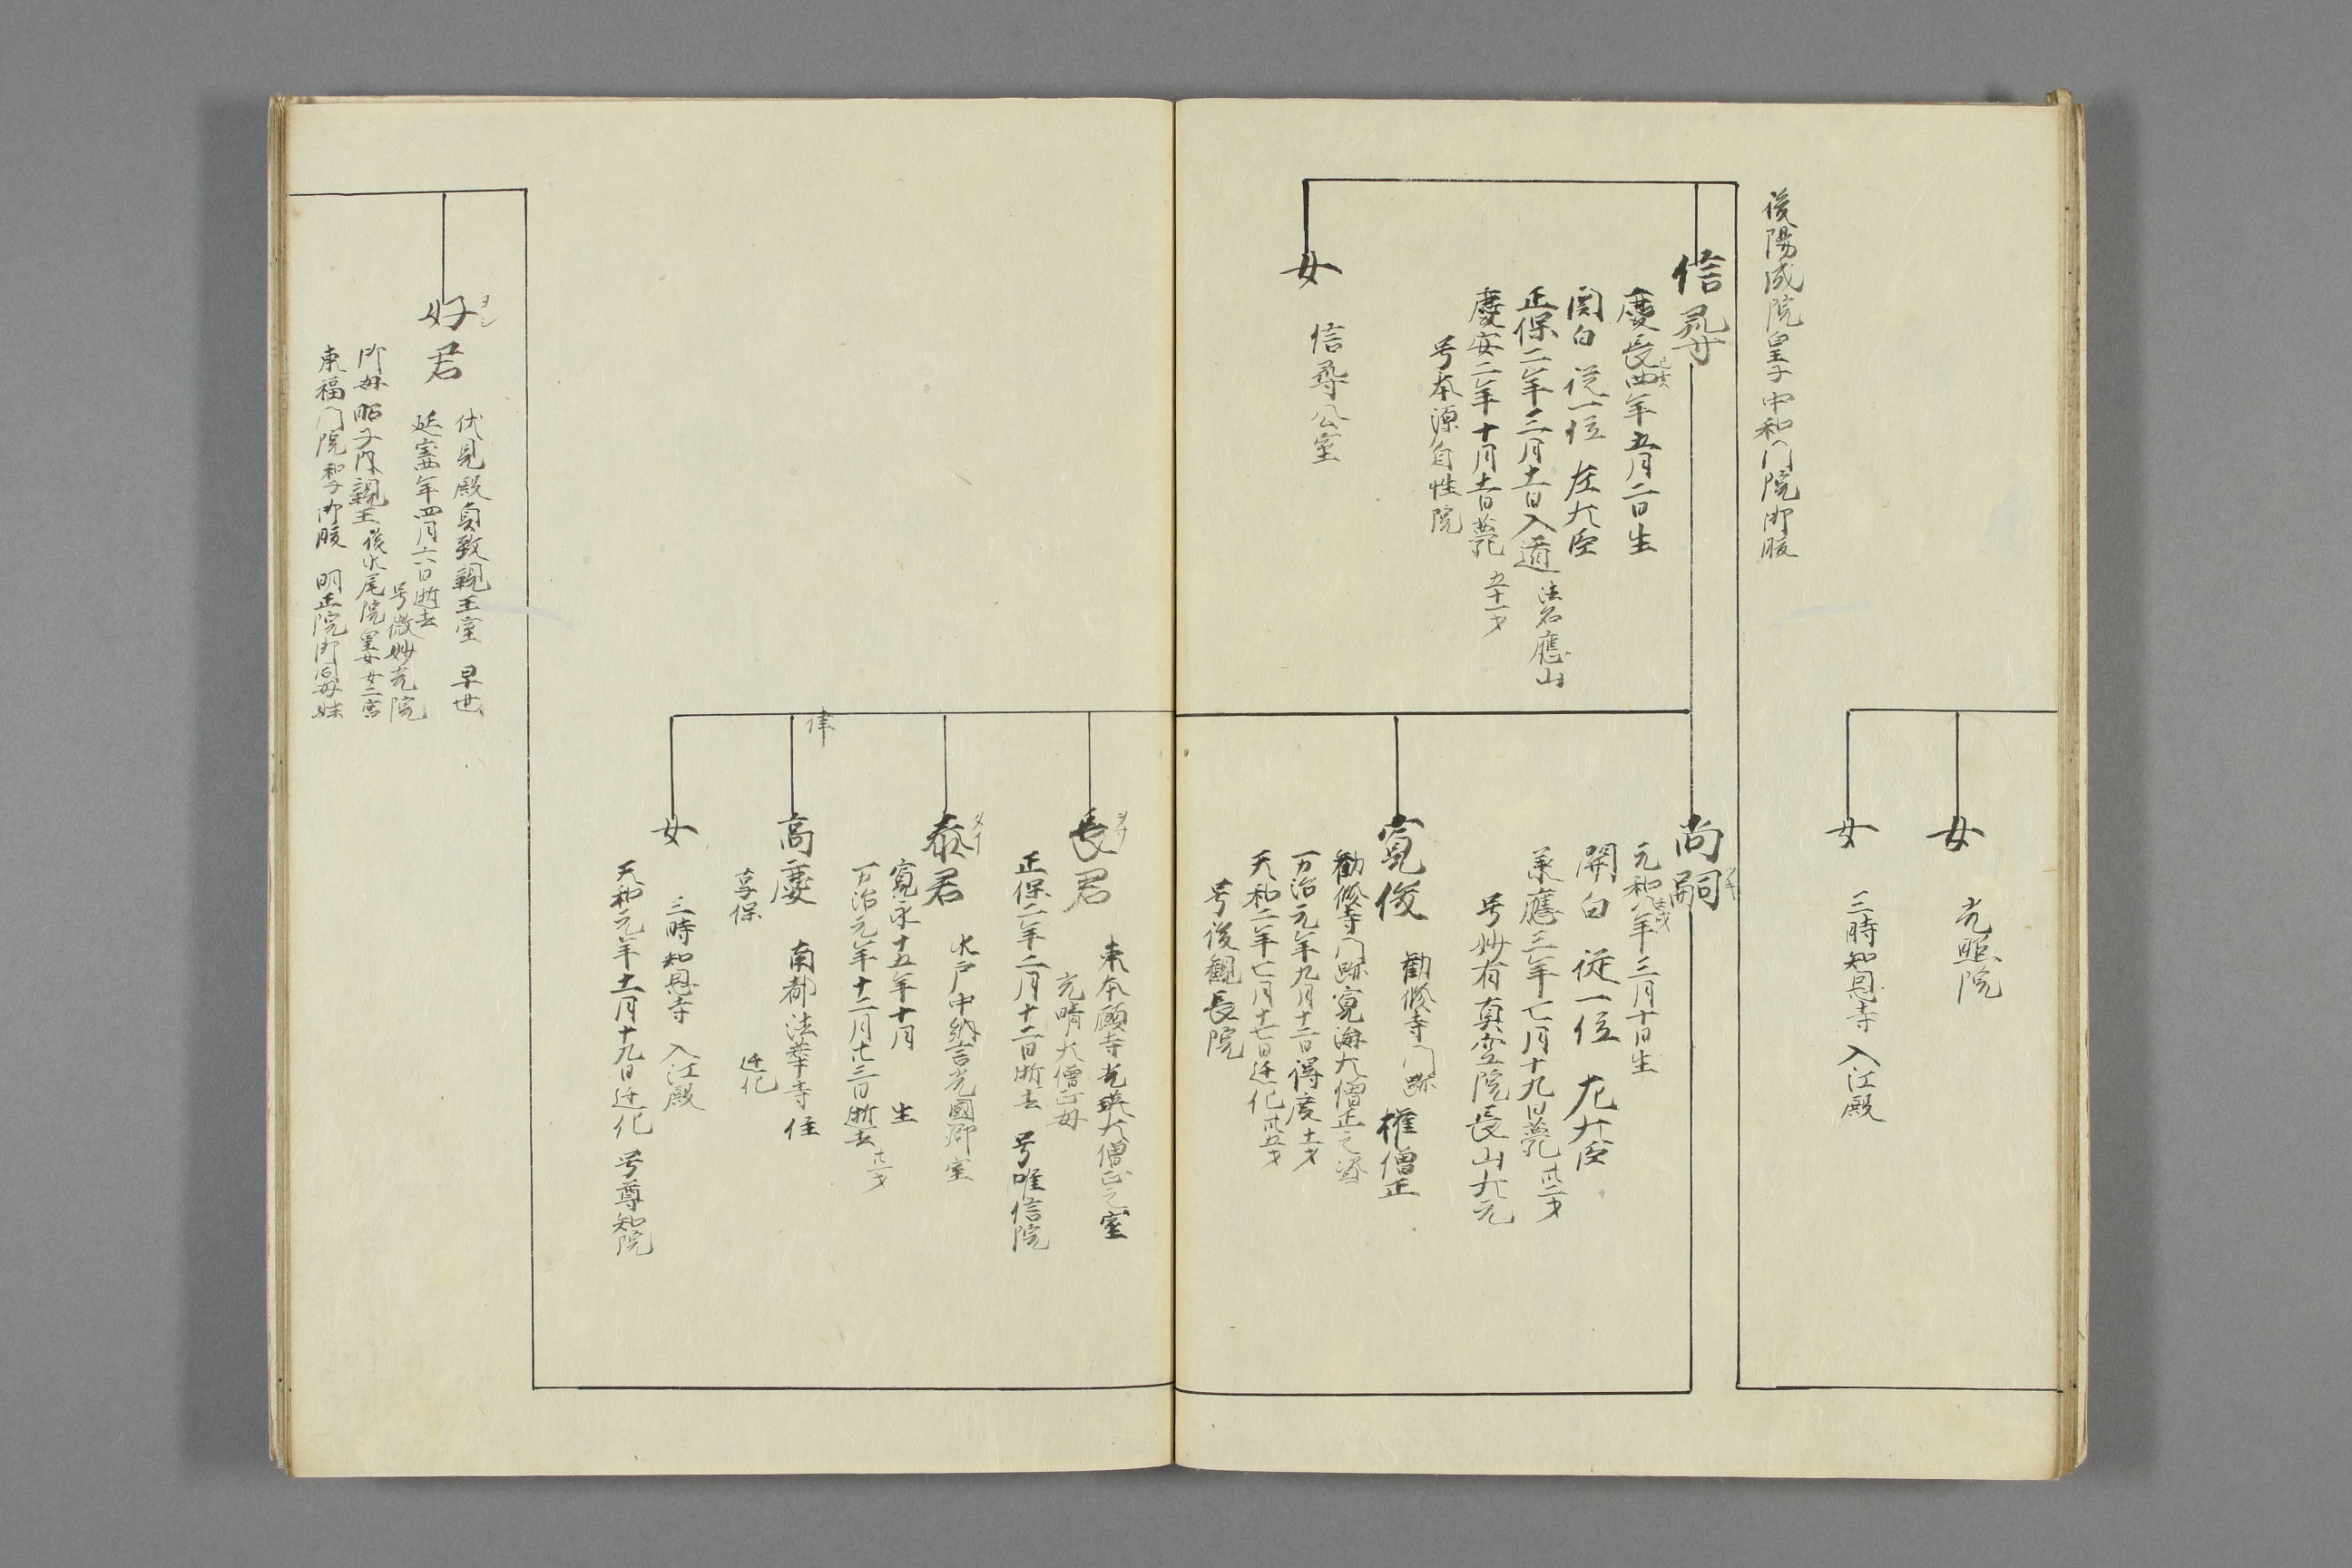 女
光照院
女
三時知恩寺 入江殿
後陽成院皇子中和門院御腹
信尋
慶長四年五月二日生
己亥
関白 従一位 左大臣
正保二年三月十一日入道 法名應山
慶安二年十月十一日薨 五十一才
号本源自性院
女
信尋公室
尚嗣
元和 年三月十日生
関白 従一位 左大臣
承應二年七月十九日薨 卅二才
号妙有真空院長山大元
寛俊
勧修寺門跡 権僧正
勧修寺門跡寛海大僧正之資
万治元年九月十二日得度 十一才
天和二年七月十七日迁化 卅五才
号後観長院
長君
東本願寺光瑛大僧正之室
光晴大僧正母
正保二年二月十二日逝去 号唯信院
泰君
水戸中納言光國卿室
寛永十五年十月 生
万治元年十二月廿三日逝去 廿一才
律
高慶
南都法華寺住
享保 迁化
女
三時知恩寺 入江殿
天和元年十一月十九日迁化 号尊知院
好君
ヨシ
伏見殿貞致親王室 早世
延宝四年四月十六日逝去
号微妙光院
御母昭子内親王 後水尾院皇女女二宮
東福門院和子御腹 明正院御同母妹